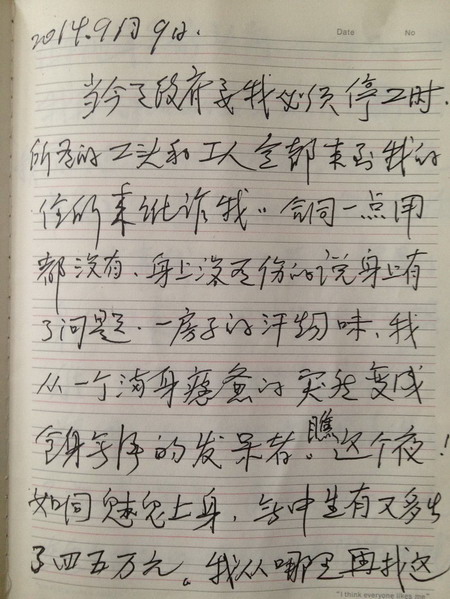 Date No
2014.9月9日.
当今天政府要我必须停工时.
所有的工头和工人全都来到我的
住所来讹诈我。合同一点用
都没有、身上没有伤的说身上有
了问题.一房子的汗物味、我
从一个满身疲惫的突然变成
全身无浑的发呆者。瞧这个夜!
如同魅鬼上身,无中生有又多出
了四五万元。我从哪里再找这
"I think everyone likes me"